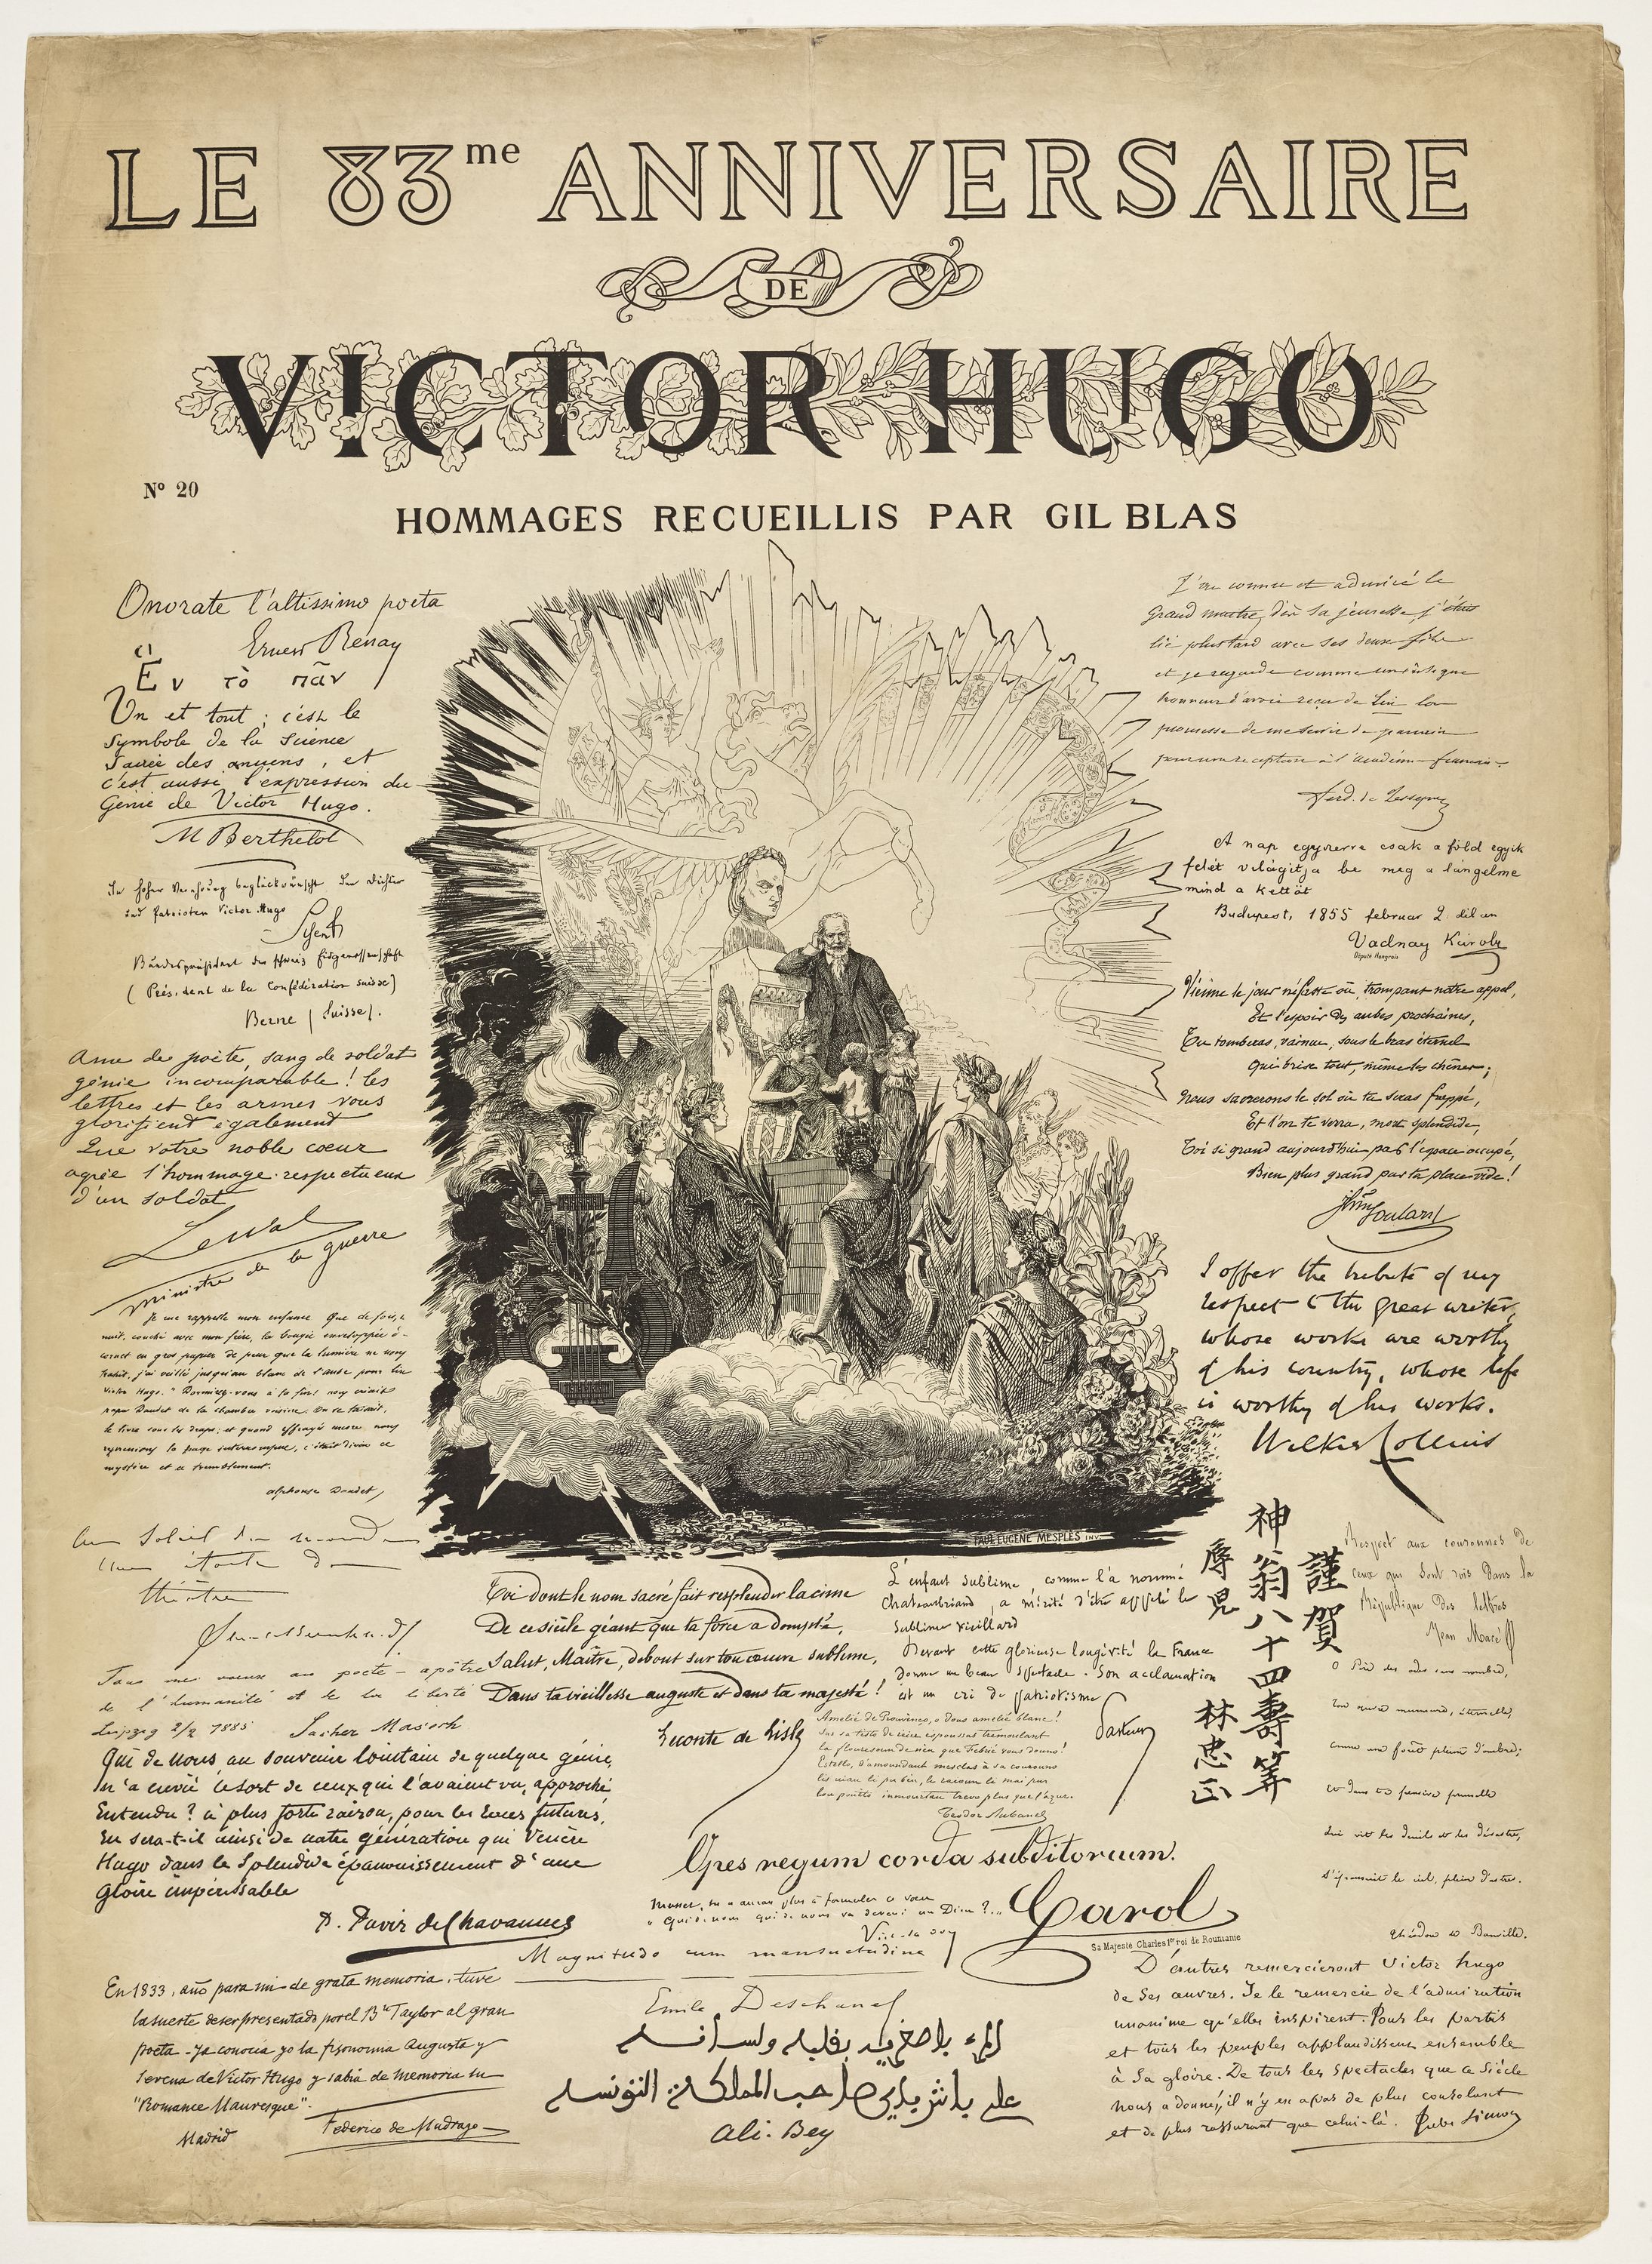 LE 83me ANNIVERSAIRE
DE
VICTOR HUGO
No 20
HOMMAGES RECUEILLIS PAR GIL BLAS
Onorate l'altissimo poeta
Ernest Renan
Ἓν τὸ πᾶν
Un et tout ; c'est le
symbole de la Science
Sacrée des anciens, et
c'est aussi l'expression du
Génie de Victor Hugo.
M Berthelot
und Patrioten Victor Hugo
Schenk
(Président de la Confédération suisse)
Berne (Suisse).
Ame de poète, sang de soldat
génie incomparable ! les
lettres et les armes vous
glorifient également
Que votre noble cœur
agrée l'hommage respectueux
d'un soldat
Lewal
ministre de la guerre
Je me rappelle mon enfance Que de fois, la
nuit, couché avec mon frère, la bougie enveloppée d'un
cornet en gros papier de peur que la lumière ne nous
trahit, j'ai veillé jusqu'au blanc de l'aube pour lire
Victor Hugo. " Dormirez-vous à la fin ! nous criait
papa Daudet de la chambre voisine. On se taisait,
le livre sous les draps ; et quand effrayés encore nous
reprenions la page interrompue, c'était divin ce
mystère et ce tremblement.
Alphonse Daudet
Au Soleil du monde
Une étoile du
théâtre
Sarah Bernhardt
Tous mes vœux au poète - apôtre
de l'humanité et de la liberté
Leipzig 2/2 1885 Sacher Masoch
Qui de nous, au souvenir lointain de quelque génie,
n'a envié le sort de ceux qui l'avaient vu, approché
Entendu ? à plus forte raison, pour les races futures,
En sera-t-il ainsi de notre génération qui vénère
Hugo dans le splendide épanouissement d'une
gloire impérissable
P. Puvis de Chavannes
En 1833, año para mi de grata memoria, tuve
la suerte de ser presentado por el Bn Taylor al gran
poeta - ya conocia yo la fisonomia Augusta y
Serena de Victor Hugo y sabia de memoria su
"Romance Mauresque".
Madrid Federico de Madrazo
J'ai connu et admiré le
Grand maître, dès sa jeunesse, j'étais
lié plus tard avec ses deux fils
et je regarde comme un insigne
honneur d'avoir reçu de Lui la
promesse de me servir de parrain
pour ma réception à l'académie française.
Ferd. de Lesseps
A nap egyszerre csak a föld egyik
felét világitja be meg a lángelme
mind a kettőt
Budapest, 1855 februar 2. dikán
Vadnay Károly
Député Hongrois
Vienne le jour néfaste où, trompant notre appel,
Et l'espoir des aubes prochaines,
Tu tomberas, vaincu, sous le bras éternel
Qui brise tout, même les chênes ;
Nous sacrerons le sol où tu seras frappé,
Et l'on te verra, mort splendide,
Toi si grand aujourd'hui par l'espace occupé,
Bien plus grand par ta place vide !
I offer the tribute of my
respect to the great writer,
whose works are worthy
of his country, whose life
is worthy of his works.
Wilkie Collins
PAUL EUGÈNE MESPLÈS INV.
Toi dont le nom sacré fait resplendir la cime
De ce siècle géant que ta force a dompté,
Salut, Maître, debout sur ton œuvre sublime,
Dans ta vieillesse auguste et dans ta majesté !
Leconte de Lisle
L'enfant sublime, comme l'a nommé
Chateaubriand, a mérité d'être appelé le
sublime vieillard
Devant cette glorieuse longévité la France
donne un beau spectacle. Son acclamation
est un cri de patriotisme
Pasteur
謹賀
神翁八十四壽筭
辱児
林忠正
Respect aux couronnes de
ceux qui sont rois dans la
République des lettres
Jean Macé
O Père des odes sans nombre,
comme une forêt pleine d'ombre ;
Qui vit les deuils et les désastres,
S'épanouit le ciel, plein d'astres.
Théodore de Banville.
Teodor Aubanel
Opes regum corda subditorum.
Carol
Sa Majesté Charles Ier roi de Roumanie
Magnitudo cum mansuetudine
Emile Deschanel
المرء باصغريه بقلبه ولسانه
علي باشا باي صاحب المملكة التونسية
Ali-Bey
D'autres remercieront Victor Hugo
de ses œuvres. Je le remercie de l'admiration
unanime qu'elles inspirent. Tous les partis
et tous les peuples applaudissent ensemble
à sa gloire. De tous les spectacles que ce siècle
nous a donné, il n'y en a pas de plus consolant
et de plus rassurant que celui-là. Jules Simon